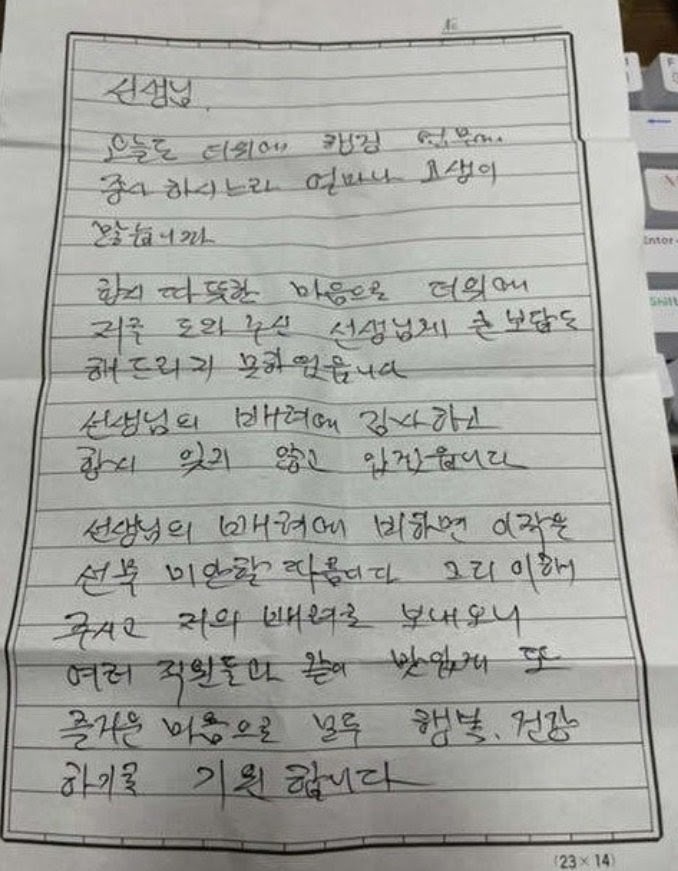 No
선생님.
오늘도 더위에 행정 업무에
종사 하시느라 얼마나 고생이
많습니까
항시 따뜻한 마음으로 더위에
저를 도와 주신 선생님께 큰 보답도
해드리지 못하였읍니다
선생님의 배려에 감사하고
항시 잊지 않고 있겠읍니다
선생님의 배려에 비하면 이 작은
선물 미안할 따름이다 그리 이해
주시고 저의 배려로 보내오니
여러 직원들과 같이 맛있게 또
즐거운 마음으로 모두 행복, 건강
하기를 기원합니다
(23×14)
Enter
Shift